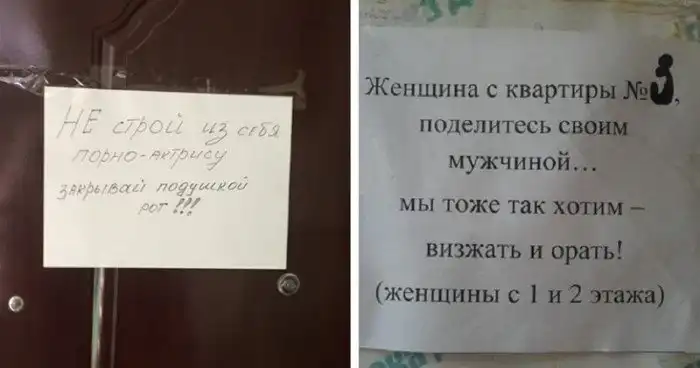 НЕ строй из себя
порно-актрису
закрывай подушкой
рот!!!
Женщина с квартиры №3,
поделитесь своим
мужчиной...
мы тоже так хотим –
визжать и орать!
(женщины с 1 и 2 этажа)